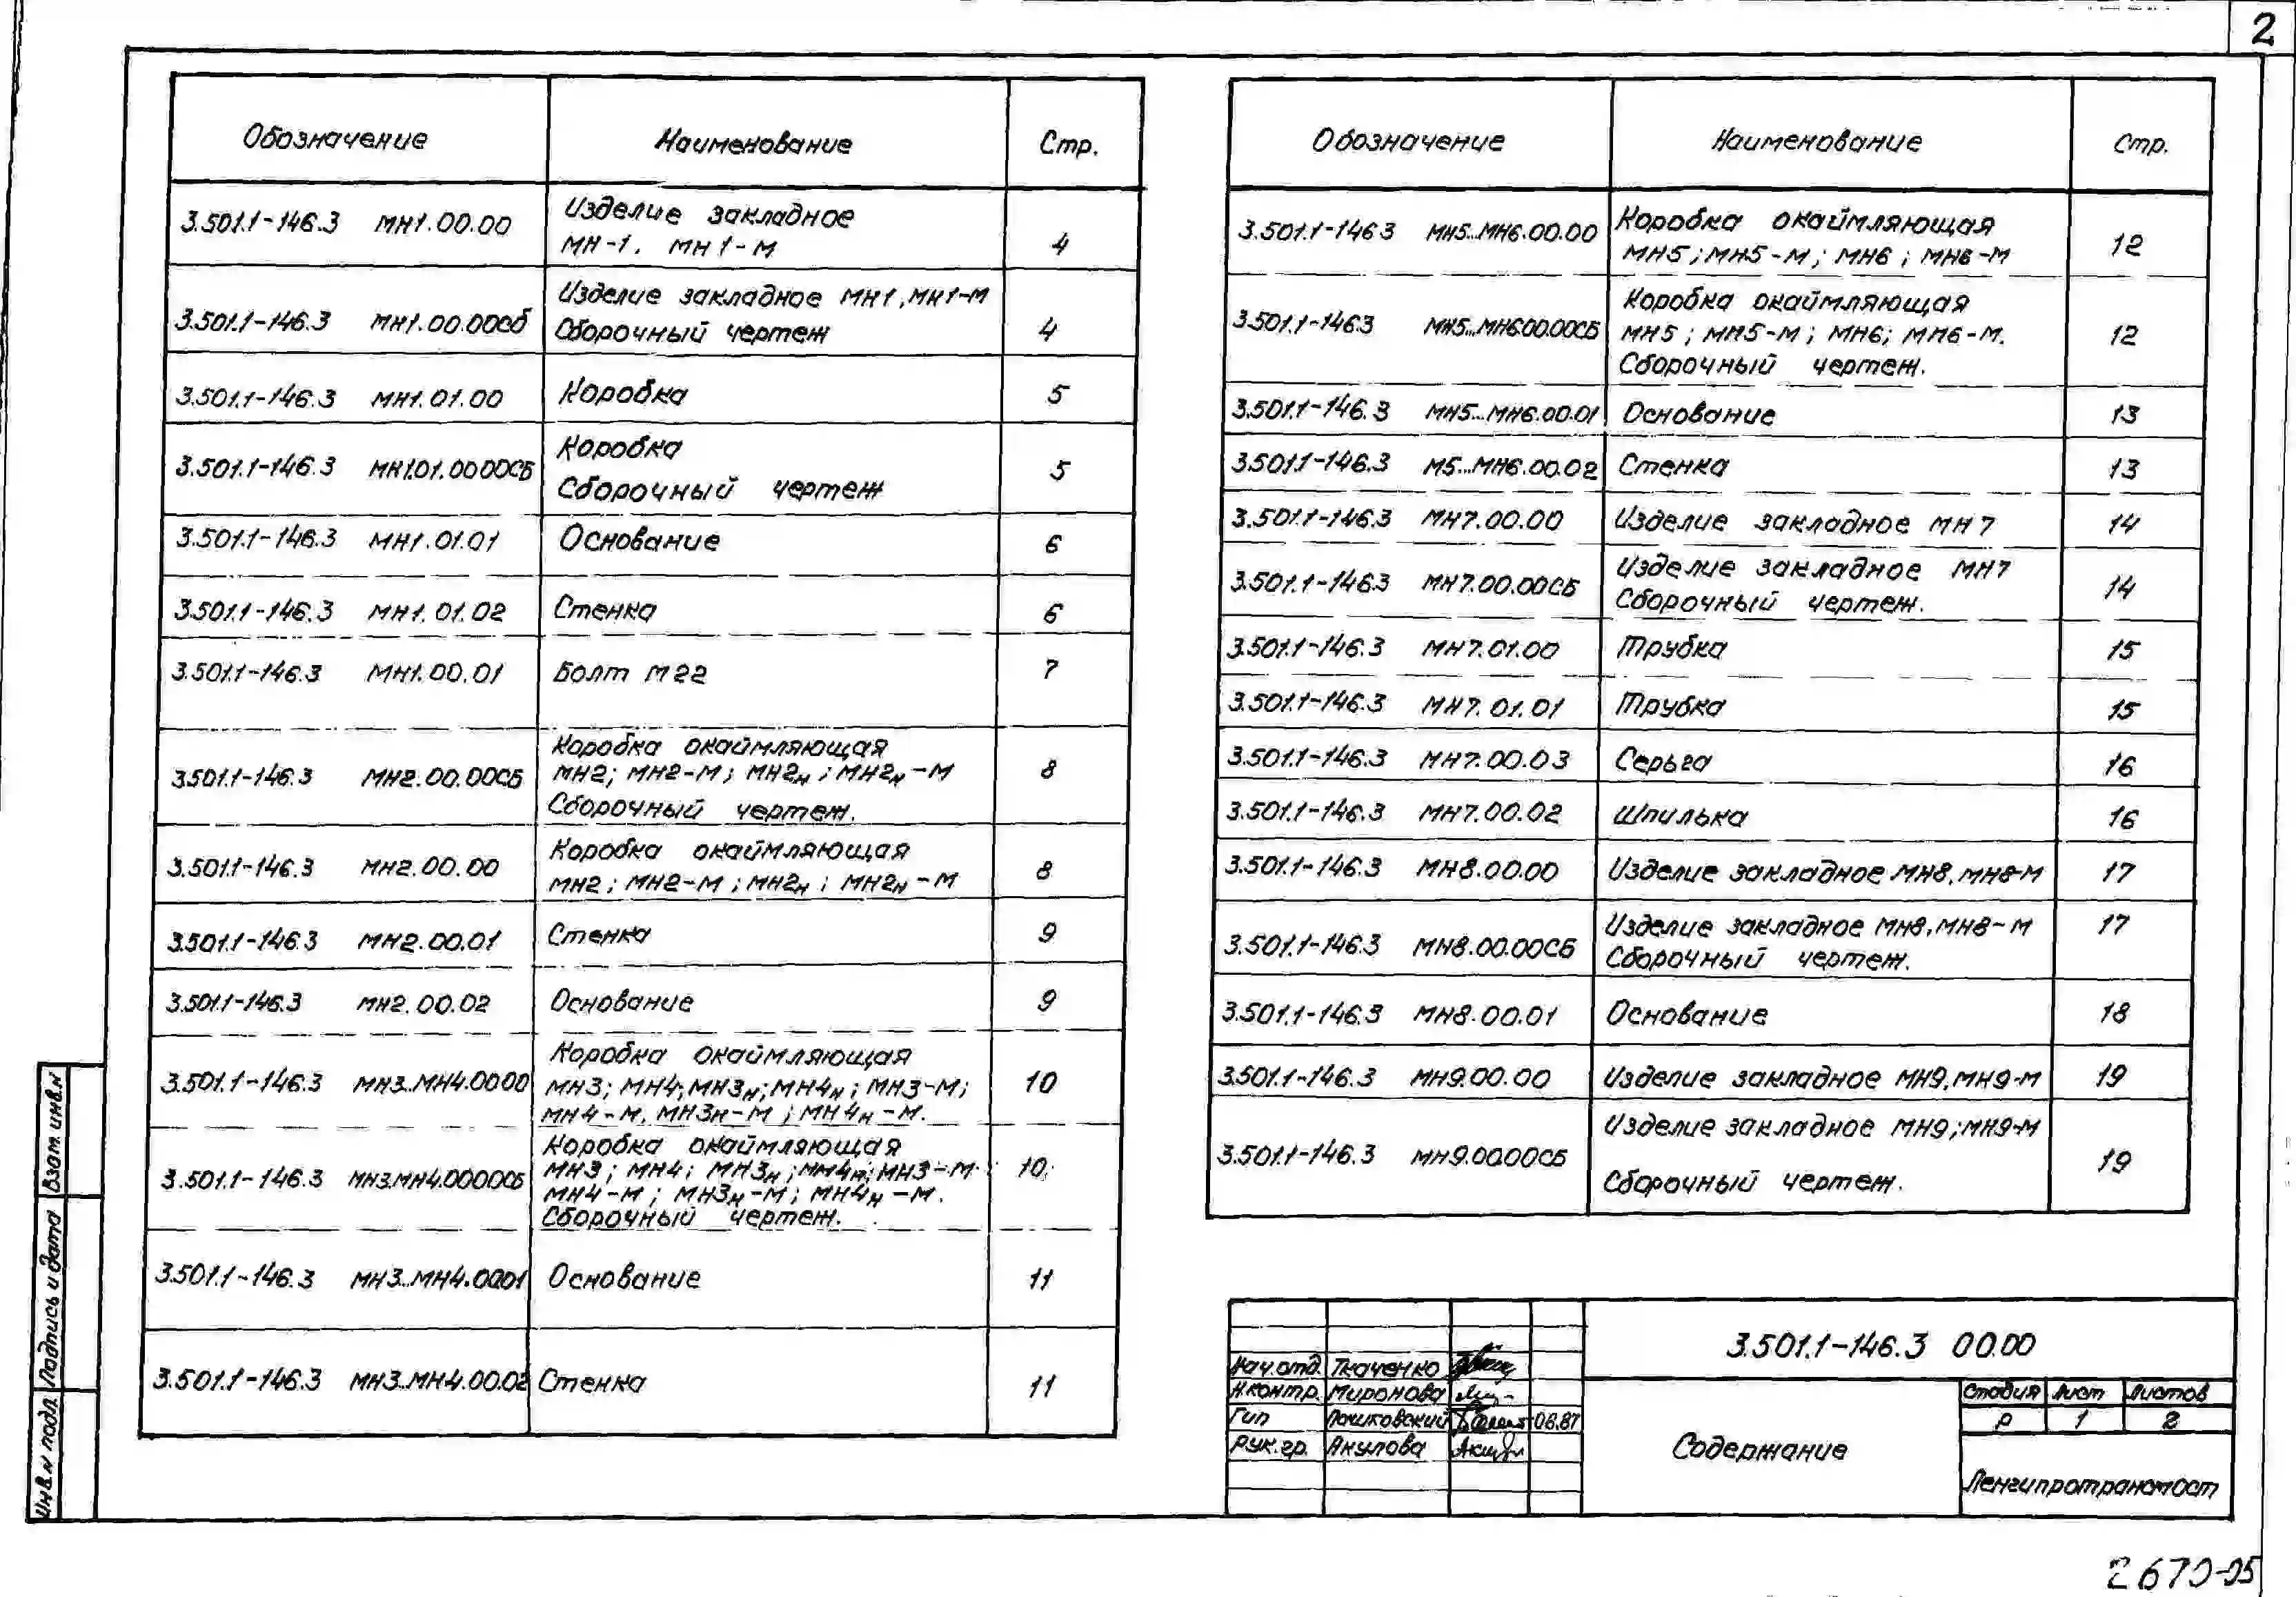 2
Обозначение Наименование Стр.
3.501.1-146.3 МН1.00.00 Изделие закладное
МН-1, МН1-М 4
3.501.1-146.3 МН1.00.00Сб Изделие закладное МН1, МН1-М
Сборочный чертеж 4
3.501.1-146.3 МН1.01.00 Коробка 5
3.501.1-146.3 МН1.01.0000СБ Коробка
Сборочный чертеж 5
3.501.1-146.3 МН1.01.01 Основание 6
3.501.1-146.3 МН1.01.02 Стенка 6
3.501.1-146.3 МН1.00.01 Болт М22 7
3.501.1-146.3 МН2.00.00СБ Коробка окаймляющая
МН2; МН2-М; МН2н; МН2н-М
Сборочный чертеж. 8
3.501.1-146.3 МН2.00.00 Коробка окаймляющая
МН2; МН2-М; МН2н; МН2н-М 8
3.501.1-146.3 МН2.00.01 Стенка 9
3.501.1-146.3 МН2.00.02 Основание 9
3.501.1-146.3 МН3...МН4.0000 Коробка окаймляющая
МН3; МН4; МН3н; МН4н; МН3-М;
МН4-М, МН3н-М; МН4н-М. 10
3.501.1-146.3 МН3.МН4.0000СБ Коробка окаймляющая
МН3; МН4; МН3н; МН4н; МН3-М
МН4-М; МН3н-М; МН4н-М.
Сборочный чертеж. 10
3.501.1-146.3 МН3...МН4.0001 Основание 11
3.501.1-146.3 МН3...МН4.00.02 Стенка 11
Обозначение Наименование Стр.
3.501.1-1463 МН5...МН6.00.00 Коробка окаймляющая
МН5; МН5-М; МН6; МН6-М 12
3.501.1-1463 МН5...МН600.00СБ Коробка окаймляющая
МН5; МН5-М; МН6; МН6-М.
Сборочный чертеж. 12
3.501.1-146.3 МН5...МН6.00.01 Основание 13
3.501.1-146.3 М5...МН6.00.02 Стенка 13
3.501.1-146.3 МН7.00.00 Изделие закладное МН7 14
3.501.1-146.3 МН7.00.00СБ Изделие закладное МН7
Сборочный чертеж. 14
3.501.1-146.3 МН7.01.00 Трубка 15
3.501.1-146.3 МН7.01.01 Трубка 15
3.501.1-146.3 МН7.00.03 Серьга 16
3.501.1-146.3 МН7.00.02 Шпилька 16
3.501.1-146.3 МН8.00.00 Изделие закладное МН8, МН8-М 17
3.501.1-146.3 МН8.00.00СБ Изделие закладное МН8, МН8-М
Сборочный чертеж. 17
3.501.1-146.3 МН8.00.01 Основание 18
3.501.1-146.3 МН9.00.00 Изделие закладное МН9, МН9-М 19
3.501.1-146.3 МН9.0000СБ Изделие закладное МН9; МН9-М
Сборочный чертеж. 19
Взам. инв.N
Подпись и дата
Инв.N подл.
Нач.отд. Ткаченко
Н.контр. Миронова
Гип Пашковский 06.87
Рук.гр. Акулова
3.501.1-146.3 00.00
Содержание
Стадия Лист Листов
Р 1 2
Ленгипротрансмост
2670-05